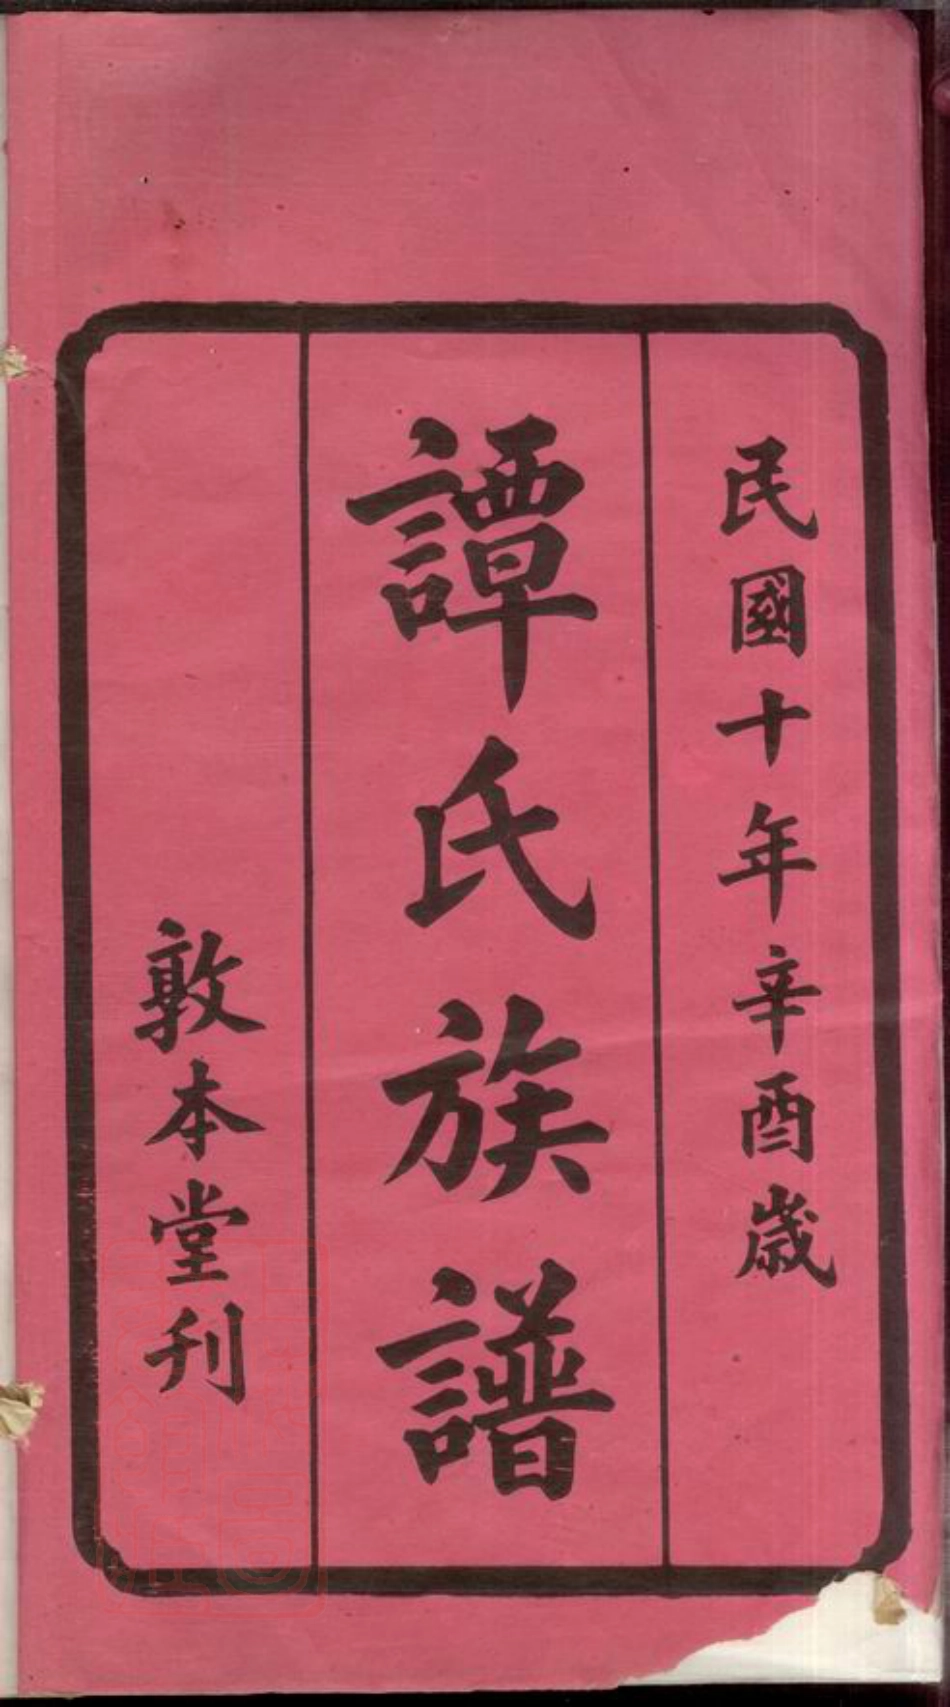 民國十年辛酉歲
譚氏族譜
敦本堂刊